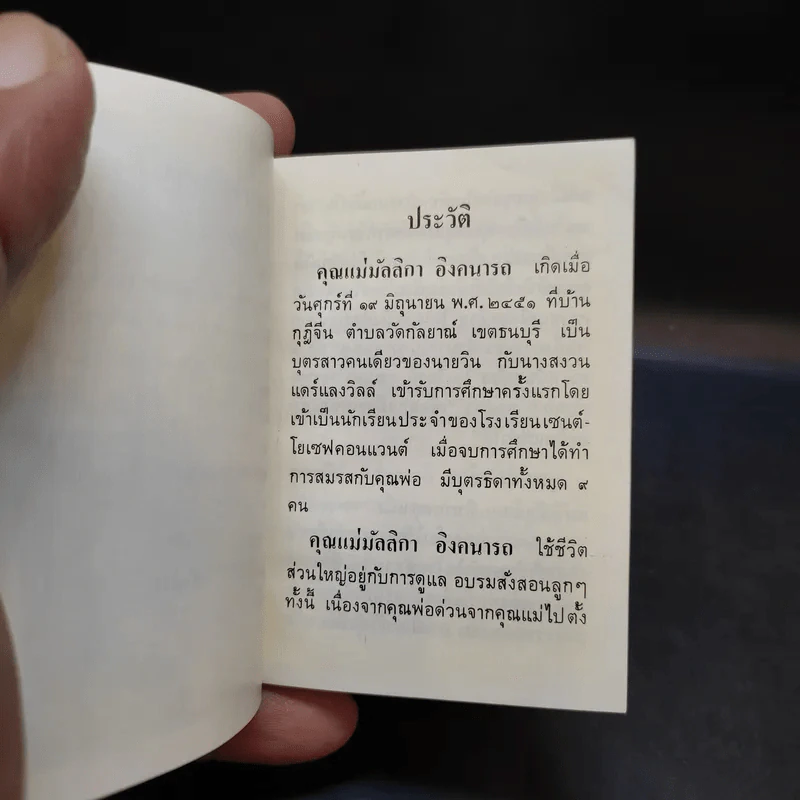 ประวัติ
คุณแม่มัลลิกา อิงคนารถ เกิดเมื่อ
วันศุกร์ที่ ๑๙ มิถุนายน พ.ศ. ๒๔๕๑ ที่บ้าน
กุฎีจีน ตำบลวัดกัลยาณ์ เขตธนบุรี เป็น
บุตรสาวคนเดียวของนายวิน กับนางสงวน
แดร์แลงวิลล์ เข้ารับการศึกษาครั้งแรกโดย
เข้าเป็นนักเรียนประจำของโรงเรียนเซนต์-
โยเซฟคอนแวนต์ เมื่อจบการศึกษาได้ทำ
การสมรสกับคุณพ่อ มีบุตรธิดาทั้งหมด ๙
คน
คุณแม่มัลลิกา อิงคนารถ ใช้ชีวิต
ส่วนใหญ่อยู่กับการดูแล อบรมสั่งสอนลูกๆ
ทั้งนี้ เนื่องจากคุณพ่อด่วนจากคุณแม่ไป ตั้ง